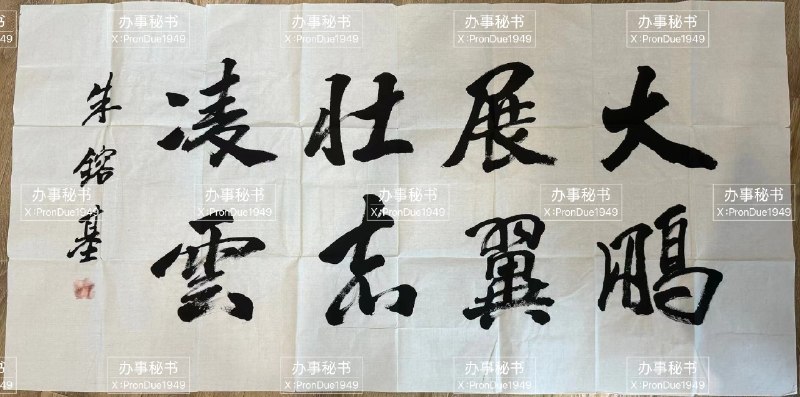 大鹏
展翼
壮志
凌雲
朱鎔基
办事秘书
X:PronDue1949
办事秘书
X:PronDue1949
办事秘书
X:PronDue1949
办事秘书
X:PronDue1949
办事秘书
X:PronDue1949
办事秘书
X:PronDue1949
办事秘书
X:PronDue1949
办事秘书
X:PronDue1949
办事秘书
X:PronDue1949
办事秘书
X:PronDue1949
办事秘书
X:PronDue1949
办事秘书
X:PronDue1949